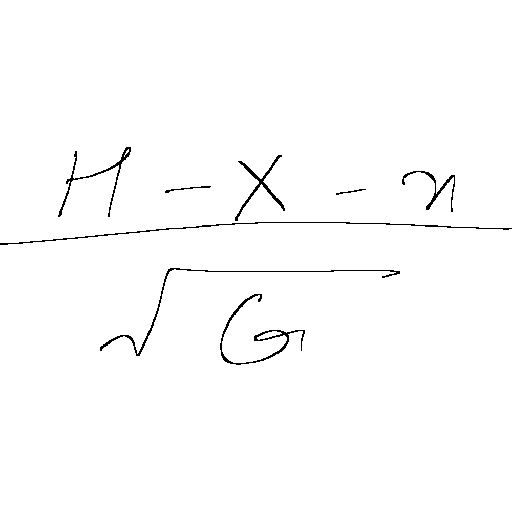 \frac{H - X - n}{\sqrt{G}}